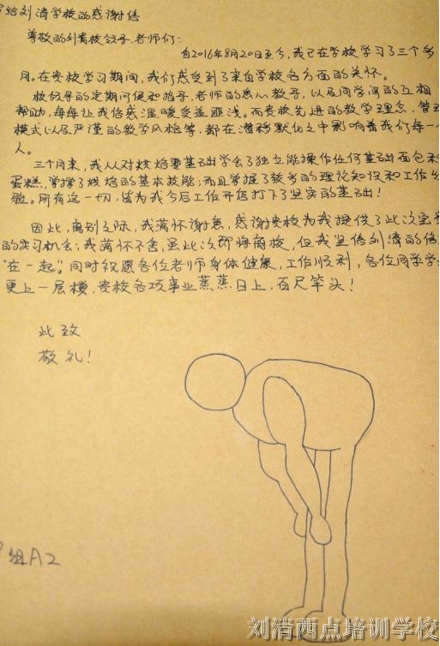 给刘清学校的感谢信
尊敬的刘清校领导、老师们:
自2016年8月20日至今,我已在学校学习了三个多
月。在贵校学习期间,我们感受到了来自学校各方面的关怀。
校领导的定期问候和指导,老师的悉心教导,以及同学间的互相
帮助,每每让我倍感温暖受益匪浅。而贵校先进的教学理念,管理
模式以及严谨的教学风格等,都在潜移默化之中影响着我们每一
人。
三个月来,我从对烘焙零基础学会了独立能操作任何基础面包和
蛋糕,掌握了烘焙的基本技能;而且掌握了较多的理论知识和工作经
验。所有这一切,皆为我今后工作开始打下了坚实的基础!
因此,离别之际,我满怀谢意,感谢贵校为我提供了此次宝贵
的实习机会;我满怀不舍,虽此次即将离校,但我坚信刘清的信
"在一起"。同时祝愿各位老师身体健康,工作顺利,各位同学学
更上一层楼,贵校各项事业蒸蒸日上,百尺竿头!
此致
敬礼!
组A2
刘清西点培训学校